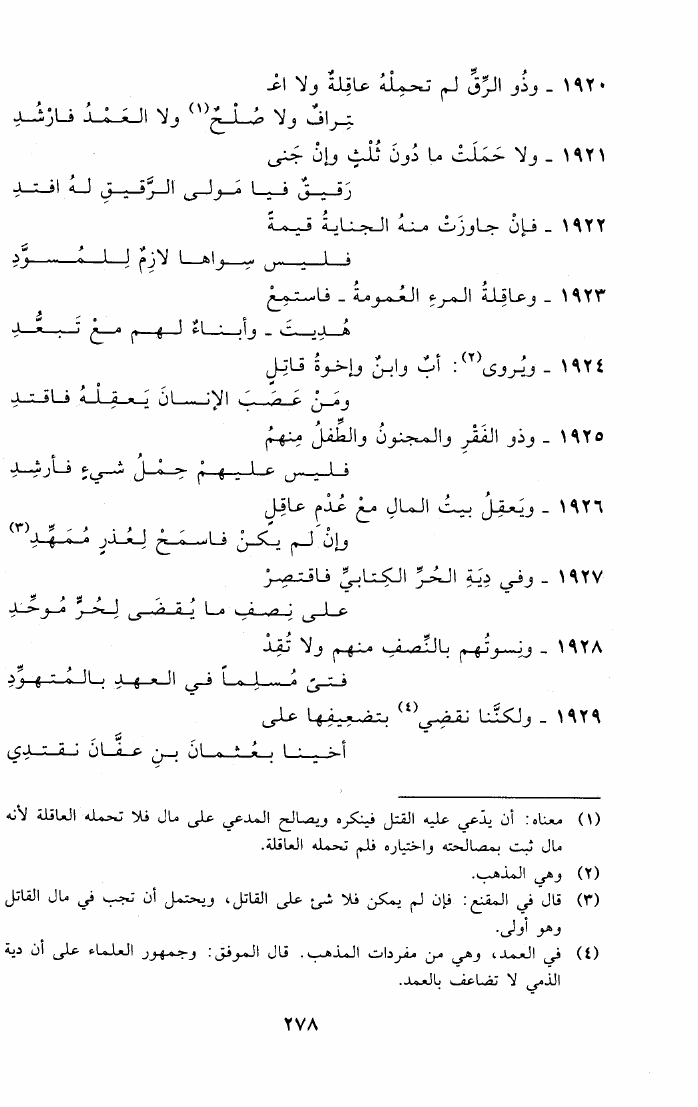 ١٩٢٠ ـ وذُو الرِّقِّ لم تحمِلْهُ عاقِلةٌ ولا اعْـ
ـتِرافٌ ولا صُلْحٌ(١) ولا العَمْدُ فارْشُدِ
١٩٢١ ـ ولا حَمَلَتْ ما دُونَ ثُلْثٍ وإنْ جَنى
رَقيقٌ فيا مَولى الرَّقيقِ لهُ افتدِ
١٩٢٢ ـ فإنْ جاوزَتْ منهُ الجنايةُ قيمةً
فليس سواها لازمٌ للمُسوَّدِ
١٩٢٣ ـ وعاقِلةُ المرءِ العُمومةُ ـ فاستمِعْ
هُديتَ ـ وأبناءٌ لهم معْ تَبعُّدِ
١٩٢٤ ـ ويُروى(٢): أبٌ وابنٌ وإخوةُ قاتِلٍ
ومَنْ عَصَبَ الإنسانَ يَعقِلْهُ فاقتدِ
١٩٢٥ ـ وذو الفَقْرِ والمجنونُ والطِّفلُ مِنهمُ
فليس عليهمْ حِمْلُ شيءٍ فأرشِدِ
١٩٢٦ ـ ويَعقِلُ بيتُ المالِ معْ عُدْمِ عاقِلٍ
وإنْ لم يكنْ فاسمَحْ لِعُذرٍ مُمَهِّدِ(٣)
١٩٢٧ ـ وفي دِيَةِ الحُرِّ الكِتابيِّ فاقتصِرْ
على نِصفِ ما يُقضَى لِحُرٍّ مُوحِّدِ
١٩٢٨ ـ ونِسوتُهم بالنِّصفِ منهم ولا تُقِدْ
فتىً مُسلِماً في العهدِ بالمُتهوِّدِ
١٩٢٩ ـ ولكنَّنا نقضِي(٤) بتضعيفِها على
أخينا بعُثمانَ بنِ عفَّانَ نقتدِي
(١) معناه: أن يدّعي عليه القتل فينكره ويصالح المدعي على مال فلا تحمله العاقلة لأنه
مال ثبت بمصالحته واختياره فلم تحمله العاقلة.
(٢) وهي المذهب.
(٣) قال في المقنع: فإن لم يمكن فلا شئ على القاتل، ويحتمل أن تجب في مال القاتل
وهو أولى.
(٤) في العمد، وهي من مفردات المذهب. قال الموفق: وجمهور العلماء على أن دية
الذمي لا تضاعف بالعمد.
٢٧٨